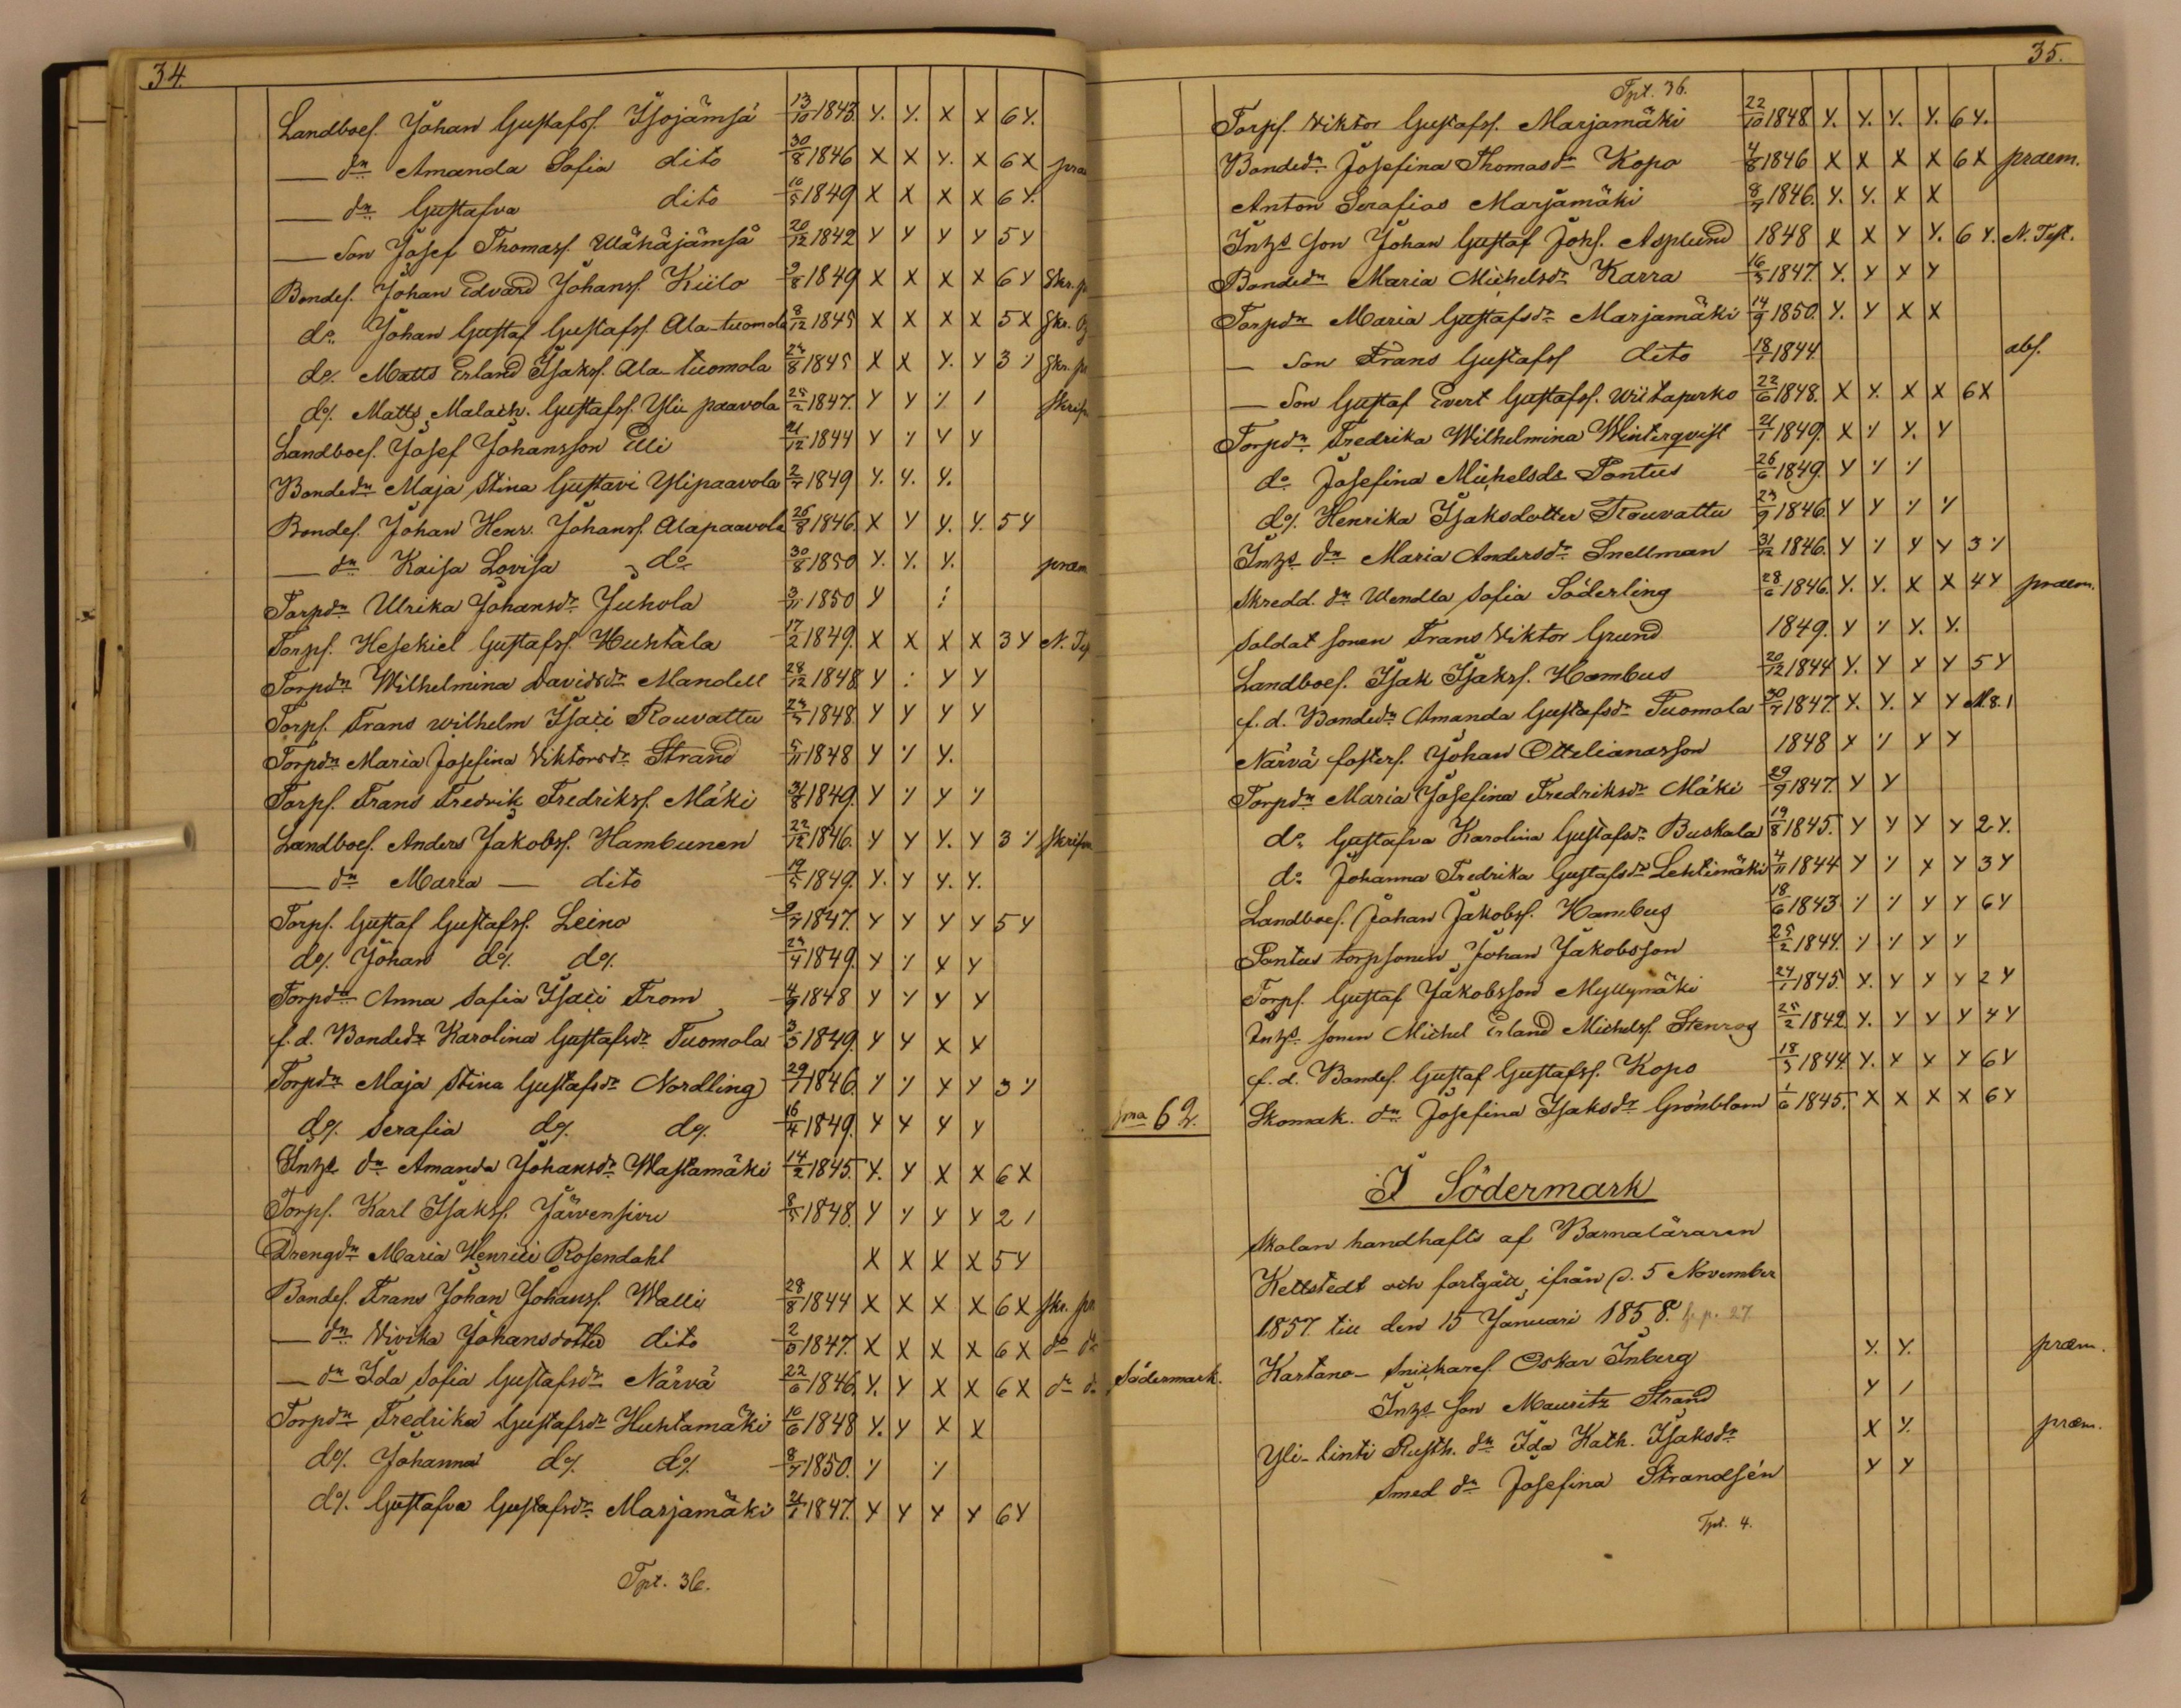 34.
Landboes. Johan Gustafss. Isojämsä 13/10 1843 Y. Y. X X 6 Y.
— dn Amanda Sofia dito 30/8 1846 X X Y. X 6 X
— dn Gustafva dito 16/5 1849 X X X X 6 Y.
— Son Josef Thomass. Wähäjämsä 20/12 1842 Y Y Y Y 5 Y
Bondes. Johan Edvard Johanss. Kiilo 9/8 1849 X X X X 6 Y Skr. p
do. Johan Gustaf Gustafss. Ala-tuomola 8/12 1845 X X X X 5 X Skr.
do. Matts Erland Isakss. Ala-tuomola 1845 X X Y. Y 3 % Skr. pr
do. Matts Malach. Gustafss. Yli paavola 25/2 1847. Y Y % /
Landboes. Josef Johansson Elli 21/12 1844 Y % Y Y
Bondedn Maja Stina Gustavi Ylipaavola 1849 Y. Y. Y.
Bondes. Johan Henr. Johanss. Alapaavola 26/8 1846. X Y Y. Y. 5 Y
— dn Kaisa Lovisa do 30/8 1850 Y. Y. Y. præm
Torpdn Ulrika Johansdr Juhola 3/11 1850 Y
Torps. Hesekiel Gustafss. Huhtala 17/2 1849. X X X X 3 Y N. Te
Torpdn Wilhelmina Davidsdr Mandell 28/12 1848 Y : Y Y
Torps. Frans Wilhelm Isaci Rouvattu 1848 Y Y Y Y
Torpdn Maria Josefina Viktorsdr Strand 5/11 1848 Y % Y.
Torps. Frans Fredrik Fredrikss. Mäki 31/8 1849. Y % Y %
Landboes. Anders Jakobss. Hambunen 22/12 1846. Y Y Y. Y 3 %
— dn Maria — dito 19/5 1849. Y. Y Y. Y.
Torps. Gustaf Gustafss. Leino 1847. Y Y Y Y 5 Y
do. Johan do. do. 1849. Y % X Y
Torpdn Anna Sofia Isaci From 4/9 1848 Y % Y Y
f. d. Bondedr Karolina Gustafsdr Tuomola 3/5 1849. Y Y X Y
Torpdn Maja Stina Gustafsdr Nordling 29/1 1846. % % X Y 3 %
do. Serafia do. do. 16/4 1849. Y Y Y Y
Inhs dn Amanda Johansdr Wastamäki 14/2 1845. Y. Y X X 6 X
Torps. Karl Isakss. Järvensivu 8/5 1848. Y % Y Y 2 /
Drengdn Maria Henrici Rosendahl X X X X 5 Y
Bondes. Frans Johan Johanss. Walli 28/8 1844 X X X X 6 X skr. pr
— dn Vivika Johansdotter dito 1847. X X X X 6 X do
— dn Ida Sofia Gustafsdr Närvä 22/6 1846. Y. Y X X 6 X
Torpdn Fredrika Gustafsdr Huhtamäki 10/6 1848 Y. Y X X
do. Johanna do. do. 1850. % %
do. Gustafva Gustafsdr Marjamäki 1847. X Y Y Y 6 Y
Tpt. 36.
35.
Tpt. 36.
Torps. Viktor Gustafss. Marjamäki 22/10 1848. Y. Y. Y. Y. 6 Y.
Bondedn Josefina Thomasdr Kopo 4/8 1846 X X X X 6 X praem.
Anton Serafias Marjamäki 8/7 1846. Y. Y. X X
Inhs son Johan Gustaf Johs. Asplund 1848 X X Y Y. 6 Y. N. Test.
Bondedn Maria Michelsdr Karra 16/5 1847. Y. Y X Y
Torpdn Maria Gustafsdr Marjamäki 14/9 1850. Y. Y X X
— Son Frans Gustafss dito 1844. abs.
— Son Gustaf Evert Gustafss. Wiitaperko 22/6 1848. X Y. X X 6 X
Torpdn Fredrika Wilhelmina Winterqvist 21/1 1849. X % Y. Y
do Josefina Michelsdr Pontus 26/6 1849. Y % %
do. Henrika Isaksdotter Rouvattu 1846. Y Y % %
Inhs dn Maria Andersdr Snellman 31/12 1846. Y % Y Y 3 %
Skredd. dn Wendla Sofia Söderling 28/6 1846. Y. Y. X X 4 Y praem.
Soldat sonen Frans Viktor Grund 1849. Y % Y. Y.
Landboes. Isak Isakss. Hambus 20/12 1844 Y. Y Y Y 5 Y
f. d. Bondedn Amanda Gustafsdr Tuomola 1847. Y. Y. Y Y
Närvä fosters. Johan Ottelianasson 1848 X % Y Y
Torpdn Maria Josefina Fredriksdr Mäki 29/9 1847. Y Y
do. Gustafva Karolina Gustafsdr Buskala 19/8 1845. Y Y Y Y 2 Y.
do. Johanna Fredrika Gustafsdr Lehtimäki 4/11 1844 Y % X Y 3 Y
Landboes. Johan Jakobss. Hambus 18/6 1843 % % Y Y 6 Y
Pontus torpsonen Johan Jakobsson 25/2 1844. % % Y Y
Torps. Gustaf Jakobsson Myllymäki 24/1 1845. Y. Y Y Y 2 Y
Inhs sonen Michel Erland Michelss. Stenrog 25/2 1842. Y. Y Y Y 4 Y
f. d. Bondes. Gustaf Gustafss. Kopo 1844. Y. X X Y 6 Y
Sma 62. Skomak. dn Josefina Isaksdr Grönblom 1/6 1845. X X X X 6 Y
I Södermark
Skolan handhafts af Barnaläraren
Kellstedt och fortgått ifrån d. 5 November
1857 till den 15 Januari 1858. p. 27.
Södermark. Kartano- Snickares. Oskar Inberg Y. Y. præm.
Inhs son Mauritz Strand Y /
Yli-linti Rusth. dn Ida Kath. Isaksdr X Y. præm.
Smed dn Josefina Strandsén Y Y
Tpt. 4.